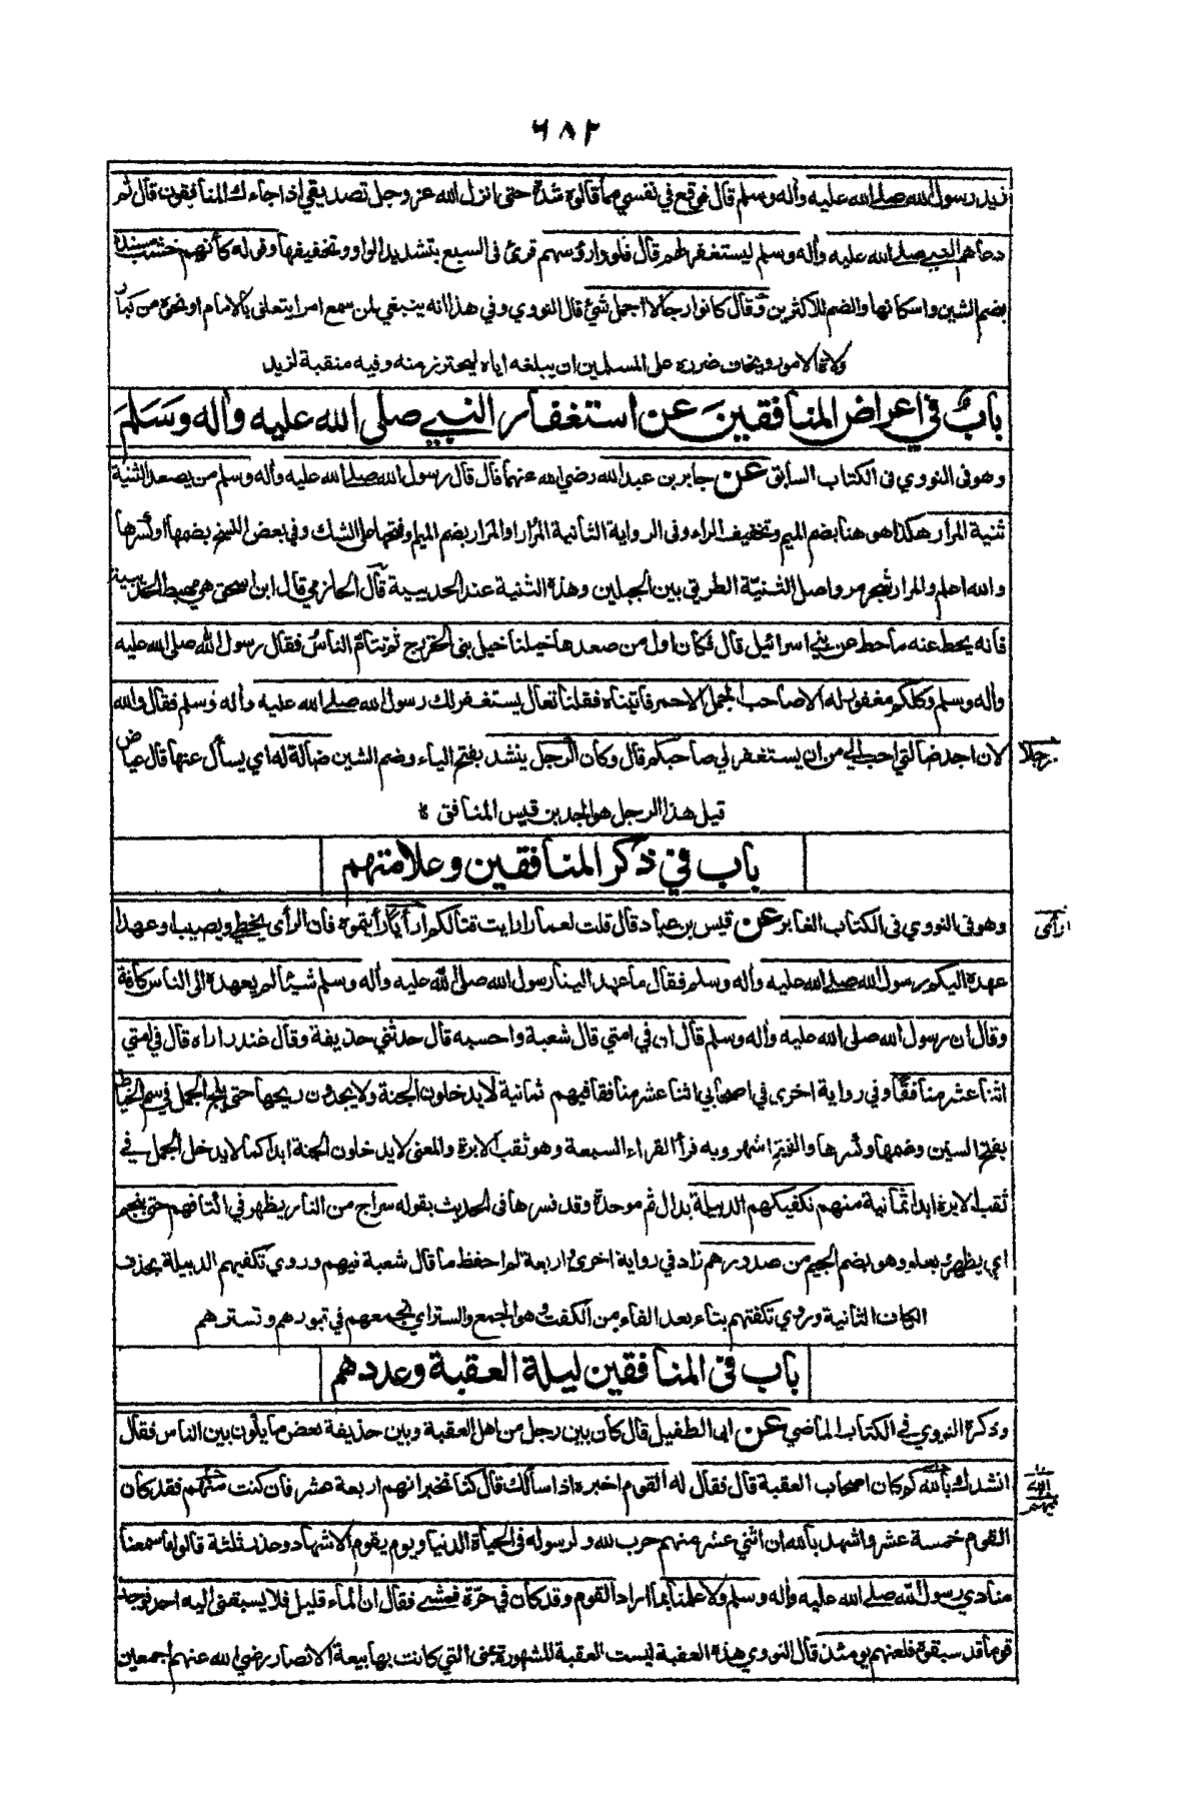 ٦٨٢
زيد رسول الله صلى الله عليه وأله وسلم قال فوقع في نفسي مما قالوه شدة حتى انزل الله عز وجل تصديقي اذا جاءك المنافقون قال ثم
دعاهم النبي صلى الله عليه وأله وسلم ليستغفر لهم قال فلووا رؤسهم قرئ في السبع بتشديد الواو وتخفيفها وقوله كأنهم خشب مسندة
بضم الشين واسكانها والضم للاكثرين وقال كانوا رجالا اجمل شئ قال النووي وفي هذا انه ينبغي لمن سمع امرا يتعلق بالامام او نحوه من كبار
ولاة الامور ويخاف ضرره على المسلمين ان يبلغه اياه ليحترز منه وفيه منقبة لزيد
باب في اعراض المنافقين عن استغفار النبي صلى الله عليه وأله وسلم
وهو في النووي في الكتاب السابق عن جابر بن عبد الله رضي الله عنهما قال قال رسول الله صلى الله عليه وأله وسلم من يصعد الثنية
ثنية المرار هكذا هو هنا بضم الميم وتخفيف الراء وفي الرواية الثانية المُرار او المَرار بضم الميم او فتحها على الشك وفي بعض النسخ بضمها او كسرها
والله اعلم والمرار شجر مر واصل الثنية الطريق بين الجبلين وهذه الثنية عند الحديبية قال الحازمي قال ابن اسحق هي مهبط الحديبية
فأنه يحط عنه ما حط عن بني اسرائيل قال فكان اول من صعدها خيلنا خيل بني الخزرج ثم تتام الناس فقال رسول الله صلى الله عليه
وأله وسلم وكلكم مغفور له الا صاحب الجمل الاحمر فأتيناه فقلنا تعال يستغفر لك رسول الله صلى الله عليه وأله وسلم فقال والله
لان اجد ضالتي احب الي من ان يستغفر لي صاحبكم قال وكان الرجل ينشد بفتح الياء وضم الشين ضالة له اي يسأل عنها قال عياض
رجلا
قيل هذا الرجل هو الجد بن قيس المنافق
باب في ذكر المنافقين وعلامتهم
وهو في النووي في الكتاب الغابر عن قيس بن عباد قال قلت لعمار ارايت قتالكم ارأيا رأيتموه فأن الرأى يخطي ويصيب او عهدا
عهده اليكم رسول الله صلى الله عليه وأله وسلم فقال ما عهد الينا رسول الله صلى الله عليه وأله وسلم شيئا لم يعهده الى الناس كافة
وقال ان رسول الله صلى الله عليه وأله وسلم قال ان في امتي قال شعبة واحسبه قال حدثني حذيفة وقال غندر اراه قال في امتي
اثنا عشر منافقا وفي رواية اخرى في اصحابي اثنا عشر منافقا فيهم ثمانية لا يدخلون الجنة ولا يجدون ريحها حتى يلج الجمل في سم الخياط
بفتح السين وضمها وكسرها والفتح اشهر وبه قرأ القراء السبعة وهو ثقب الابرة والمعنى لا يدخلون الجنة ابدا كما لا يدخل الجمل في
ثقب الابرة ابدا ثمانية منهم تكفيكهم الدبيلة بدال ثم موحدة وقد فسرها في الحديث بقوله سراج من النار يظهر في اكتافهم حتى ينجم
اي يظهر ويعلو وهو بضم الجيم من صدورهم زاد في رواية اخرى واربعة لم احفظ ما قال شعبة فيهم وروي تكفيهم الدبيلة بحذف
الكاف الثانية وروي تكفتهم بتاء بعد الفاء من الكفت وهو الجمع والستر اي تجمعهم في قبورهم وتسترهم
باب في المنافقين ليلة العقبة وعددهم
وذكره النووي في الكتاب الماضي عن ابى الطفيل قال كان بين رجل من اهل العقبة وبين حذيفة بعض ما يكون بين الناس فقال
انشدك بالله كم كان اصحاب العقبة قال فقال له القوم اخبره اذا سألك قال كنا نخبر انهم اربعة عشر فأن كنت منهم فقد كان
القوم خمسة عشر واشهد بالله ان اثني عشر منهم حرب لله ولرسوله في الحياة الدنيا ويوم يقوم الاشهاد وعذر ثلثة قالوا ما سمعنا
منادي رسول الله صلى الله عليه وأله وسلم ولا علمنا بما اراد القوم وقد كان في حرة فمشى فقال ان الماء قليل فلا يسبقني اليه احد فوجد
قوما قد سبقوه فلعنهم يومئذ قال النووي هذه العقبة ليست العقبة المشهورة بمنى التي كانت بها بيعة الانصار رضي الله عنهم اجمعين